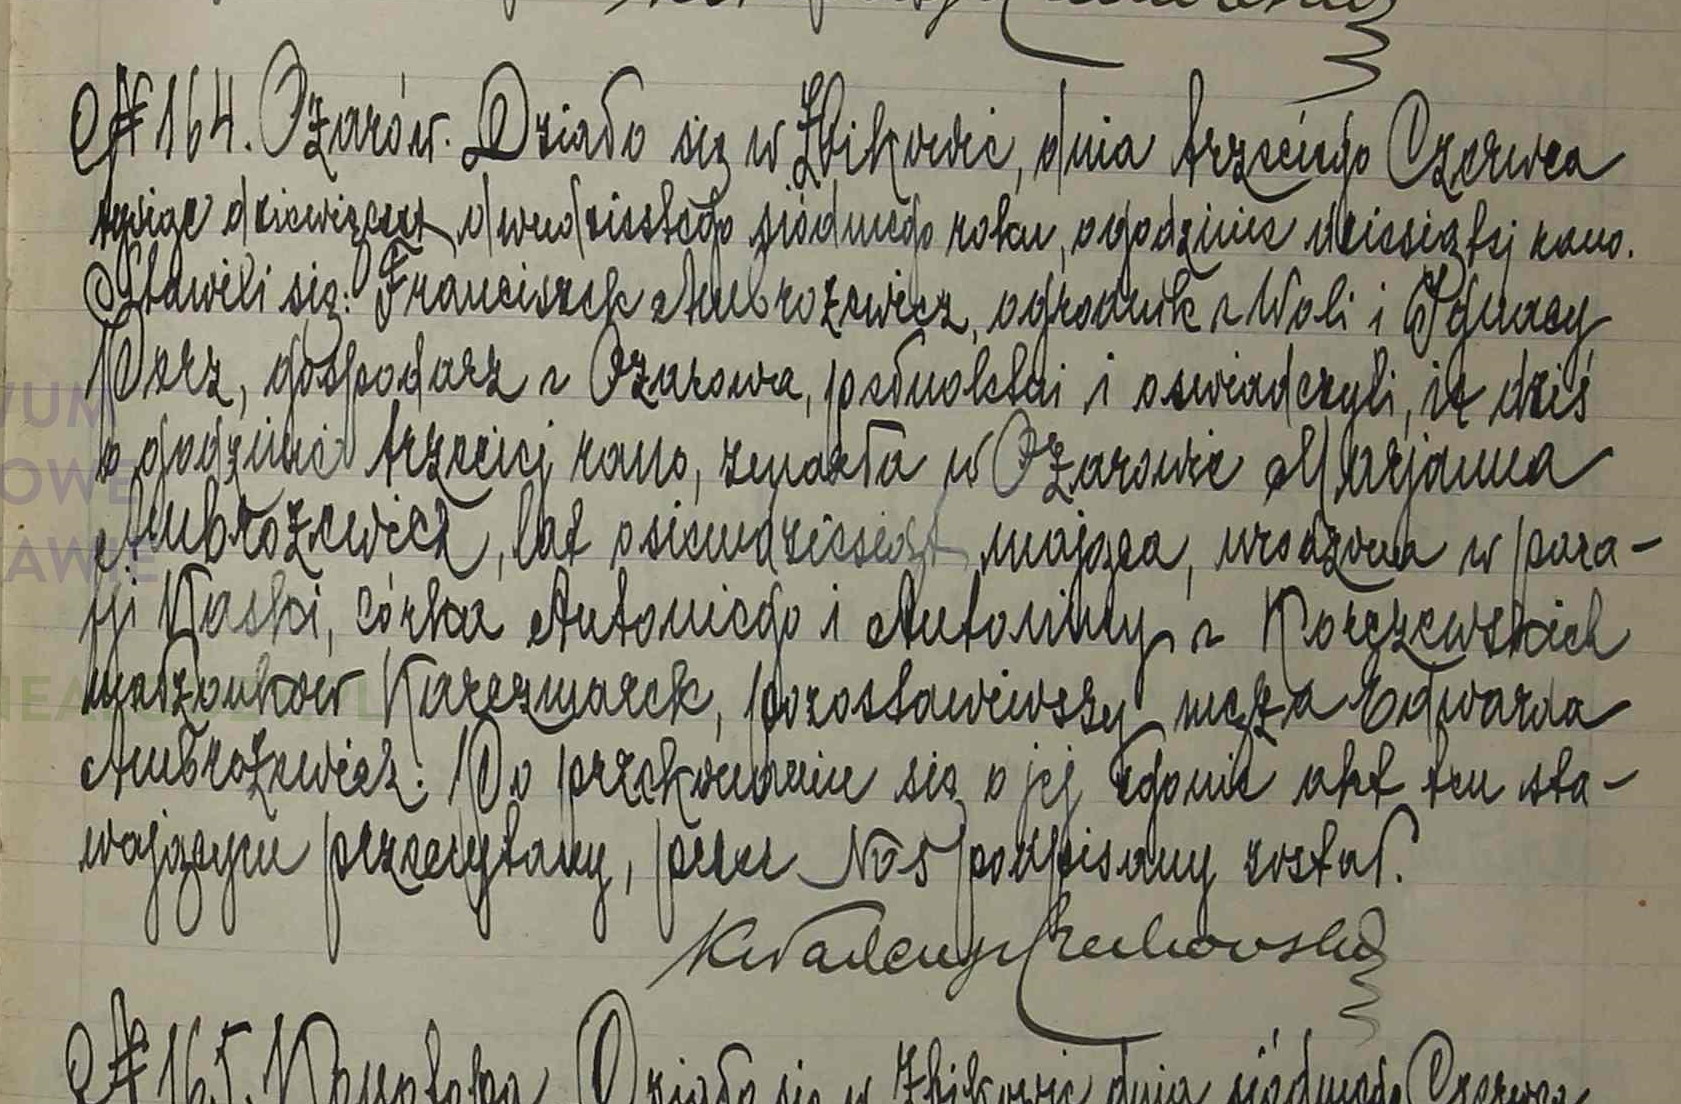 № 164. Ożarów. Działo się w Żbikowie, dnia trzeciego Czerwca
tysiąc dziewięćset dwudziestego siódmego roku, o godzinie dziesiątej rano.
Stawili się: Franciszek Ambrożewicz, ogrodnik z Woli i Ignacy
gospodarz z Ożarowa, pełnoletni i oświadczyli, iż dziś
o godzinie trzeciej rano, zmarła w Ożarowie Marjanna
Ambrożewicz, lat osiemdziesiąt mająca, urodzona w para-
fji Kaski, córka Antoniego i Antoniny z Korczewskich
małżonków Karczmarek, pozostawiwszy męża Edwarda
Ambrożewicz. Po przekonaniu się o jej zgonie akt ten sta-
wającym przeczytany, przez Nas podpisany został.
№ 165. Działo się w Żbikowie dnia siódmego Czerwca